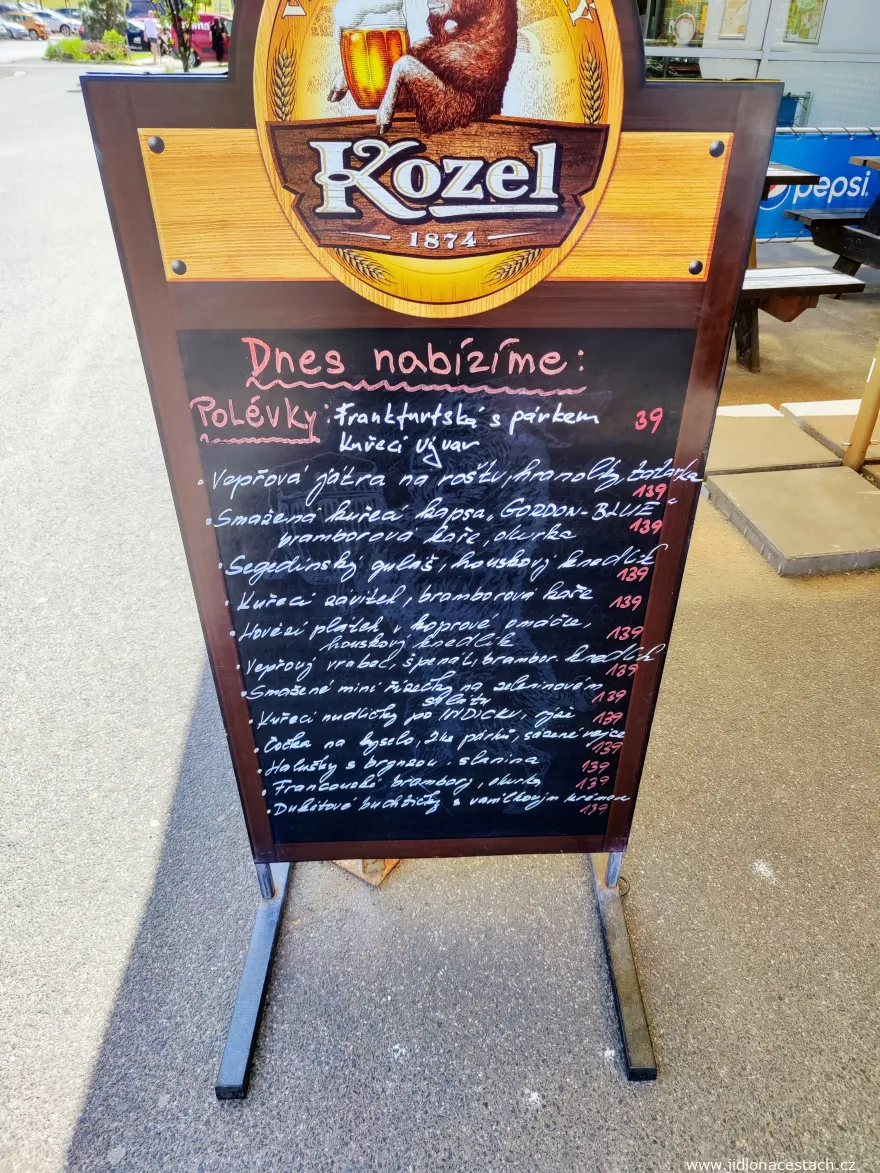 Kozel
1874
pepsi.
Dnes nabízíme:
Polévky: Frankfurtská s párkem 39
Kuřecí vývar
• Vepřová játra na roštu, hranolky, tatarka
139
• Smažená kuřecí kapsa, GORDON-BLUE"
139
bramborová kaše, okurka
• Segedínský guláš, houskový knedlík
139
• Kuřecí závitek, bramborová kaše 139
• Hovězí plátek v koprové omáčce, 139
houskový knedlík
• Vepřový vrabec, špenát, brambor. knedlík
139
• Smažené mini řízečky na zeleninovém 139
salátu
• Kuřecí nudličky po INDICKU, rýže 139
• Čočka na kyselo, 2ks párků, sázené vejce
139
• Halušky s brynzou, slanina 139
• Francouzské brambory, okurka 139
• Dukátové buchtičky s vanilkovým krémem
139
www.jidlonacestach.cz